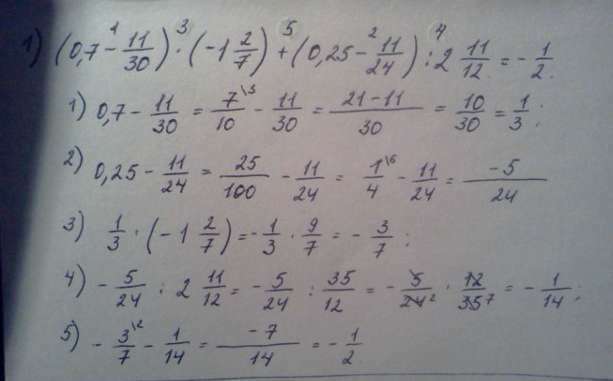 1) (0,7 -¹ 11/30) ·³ (-1 2/7) +⁵ (0,25 -² 11/24) :⁴ 2 11/12 = - 1/2.
1) 0,7 - 11/30 = 7\³/10 - 11/30 = 21-11/30 = 10/30 = 1/3;
2) 0,25 - 11/24 = 25/100 - 11/24 = 1\⁶/4 - 11/24 = -5/24
3) 1/3 · (-1 2/7) = - 1/3 · 9/7 = - 3/7;
4) - 5/24 : 2 11/12 = - 5/24 : 35/12 = - 5/24₂ · 12/35₇ = - 1/14;
5) - 3\²/7 - 1/14 = -7/14 = - 1/2